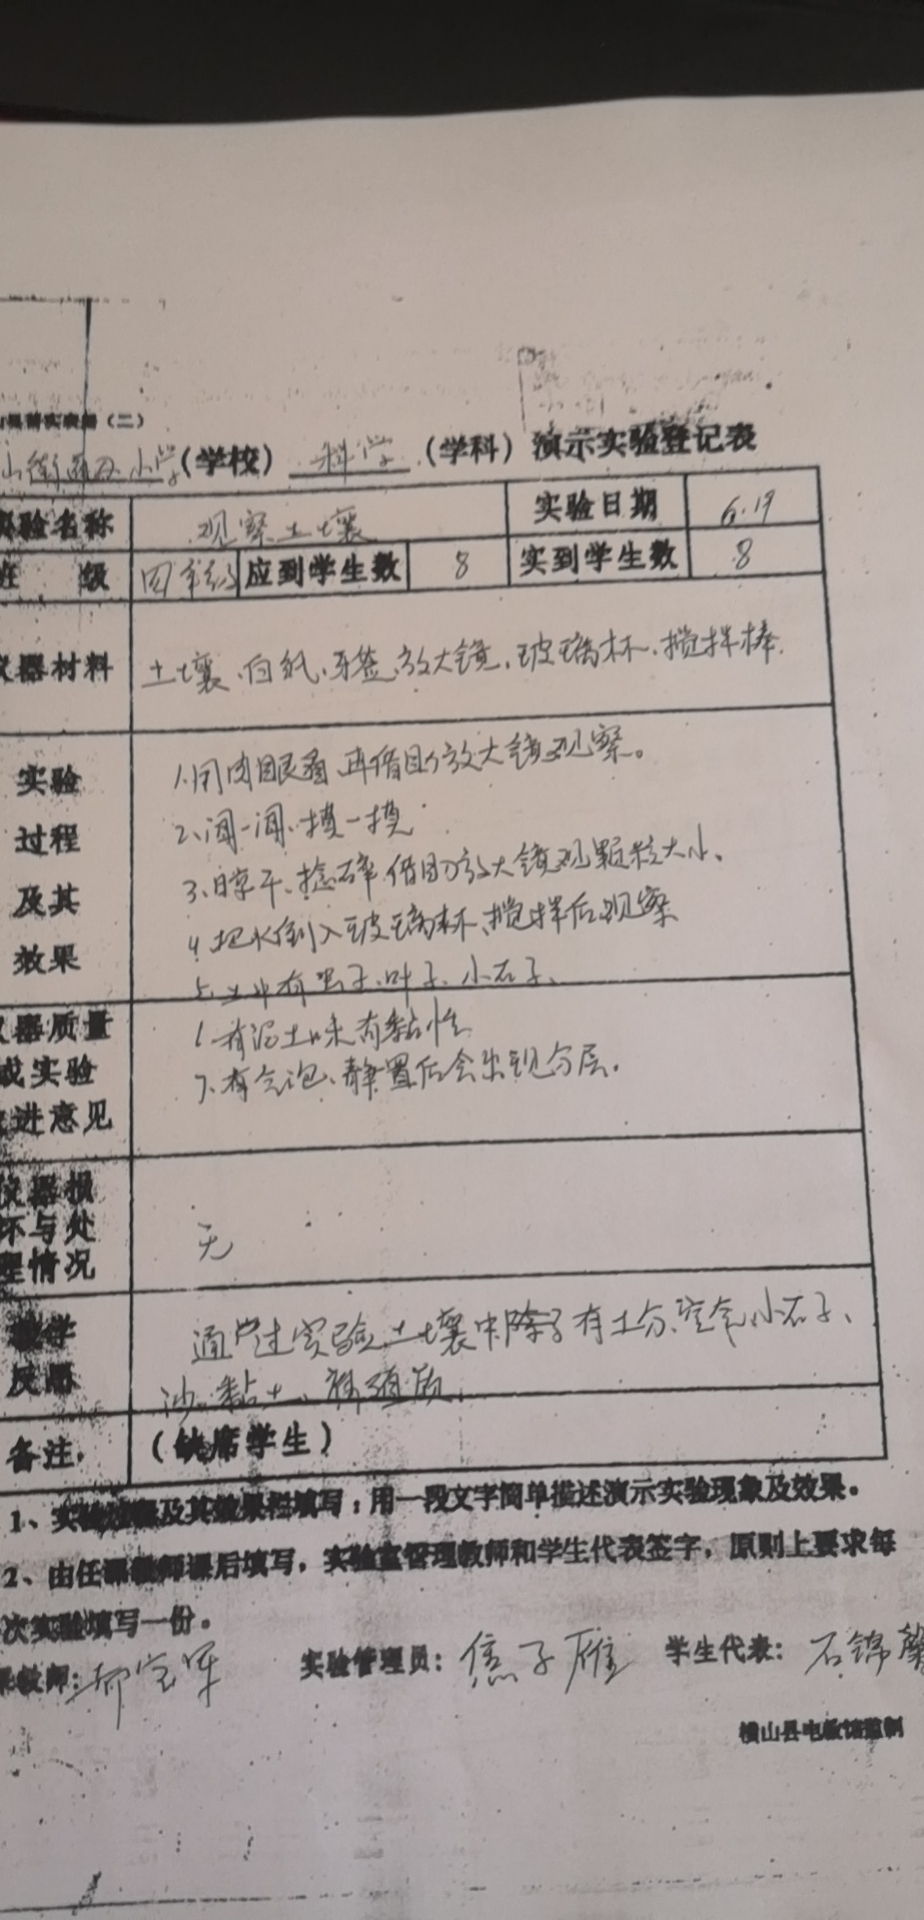 （二）
小学（学校） 科学 （学科）演示实验登记表
实验名称 观察土壤 实验日期 6.19
班 级 四年级 应到学生数 8 实到学生数 8
仪器材料 土壤、白纸、牙签、放大镜、玻璃杯、搅拌棒.
实验 1.用肉眼看,再借助放大镜观察。
过程 2、闻一闻、摸一摸
及其 3、晾干、捻碎、借助放大镜观颗粒大小、
效果 4、把水倒入玻璃杯、搅拌后观察
5、土中有 叶子、小石子、
仪器质量 1.有泥土味有黏性
或实验 2、有气泡、静置后会出现分层.
改进意见
仪器损
坏与处 无
理情况
教学 通过实验土壤中除了有土分、空气、小石子、
反思 沙、黏土、腐殖质.
备注, （缺席学生）
1、实验过程及其效果栏填写：用一段文字简单描述演示实验现象及效果。
2、由任课教师课后填写，实验室管理教师和学生代表签字，原则上要求每
次实验填写一份。
教师: 实验管理员: 焦子雁 学生代表: 石锦馨
横山县电教馆监制